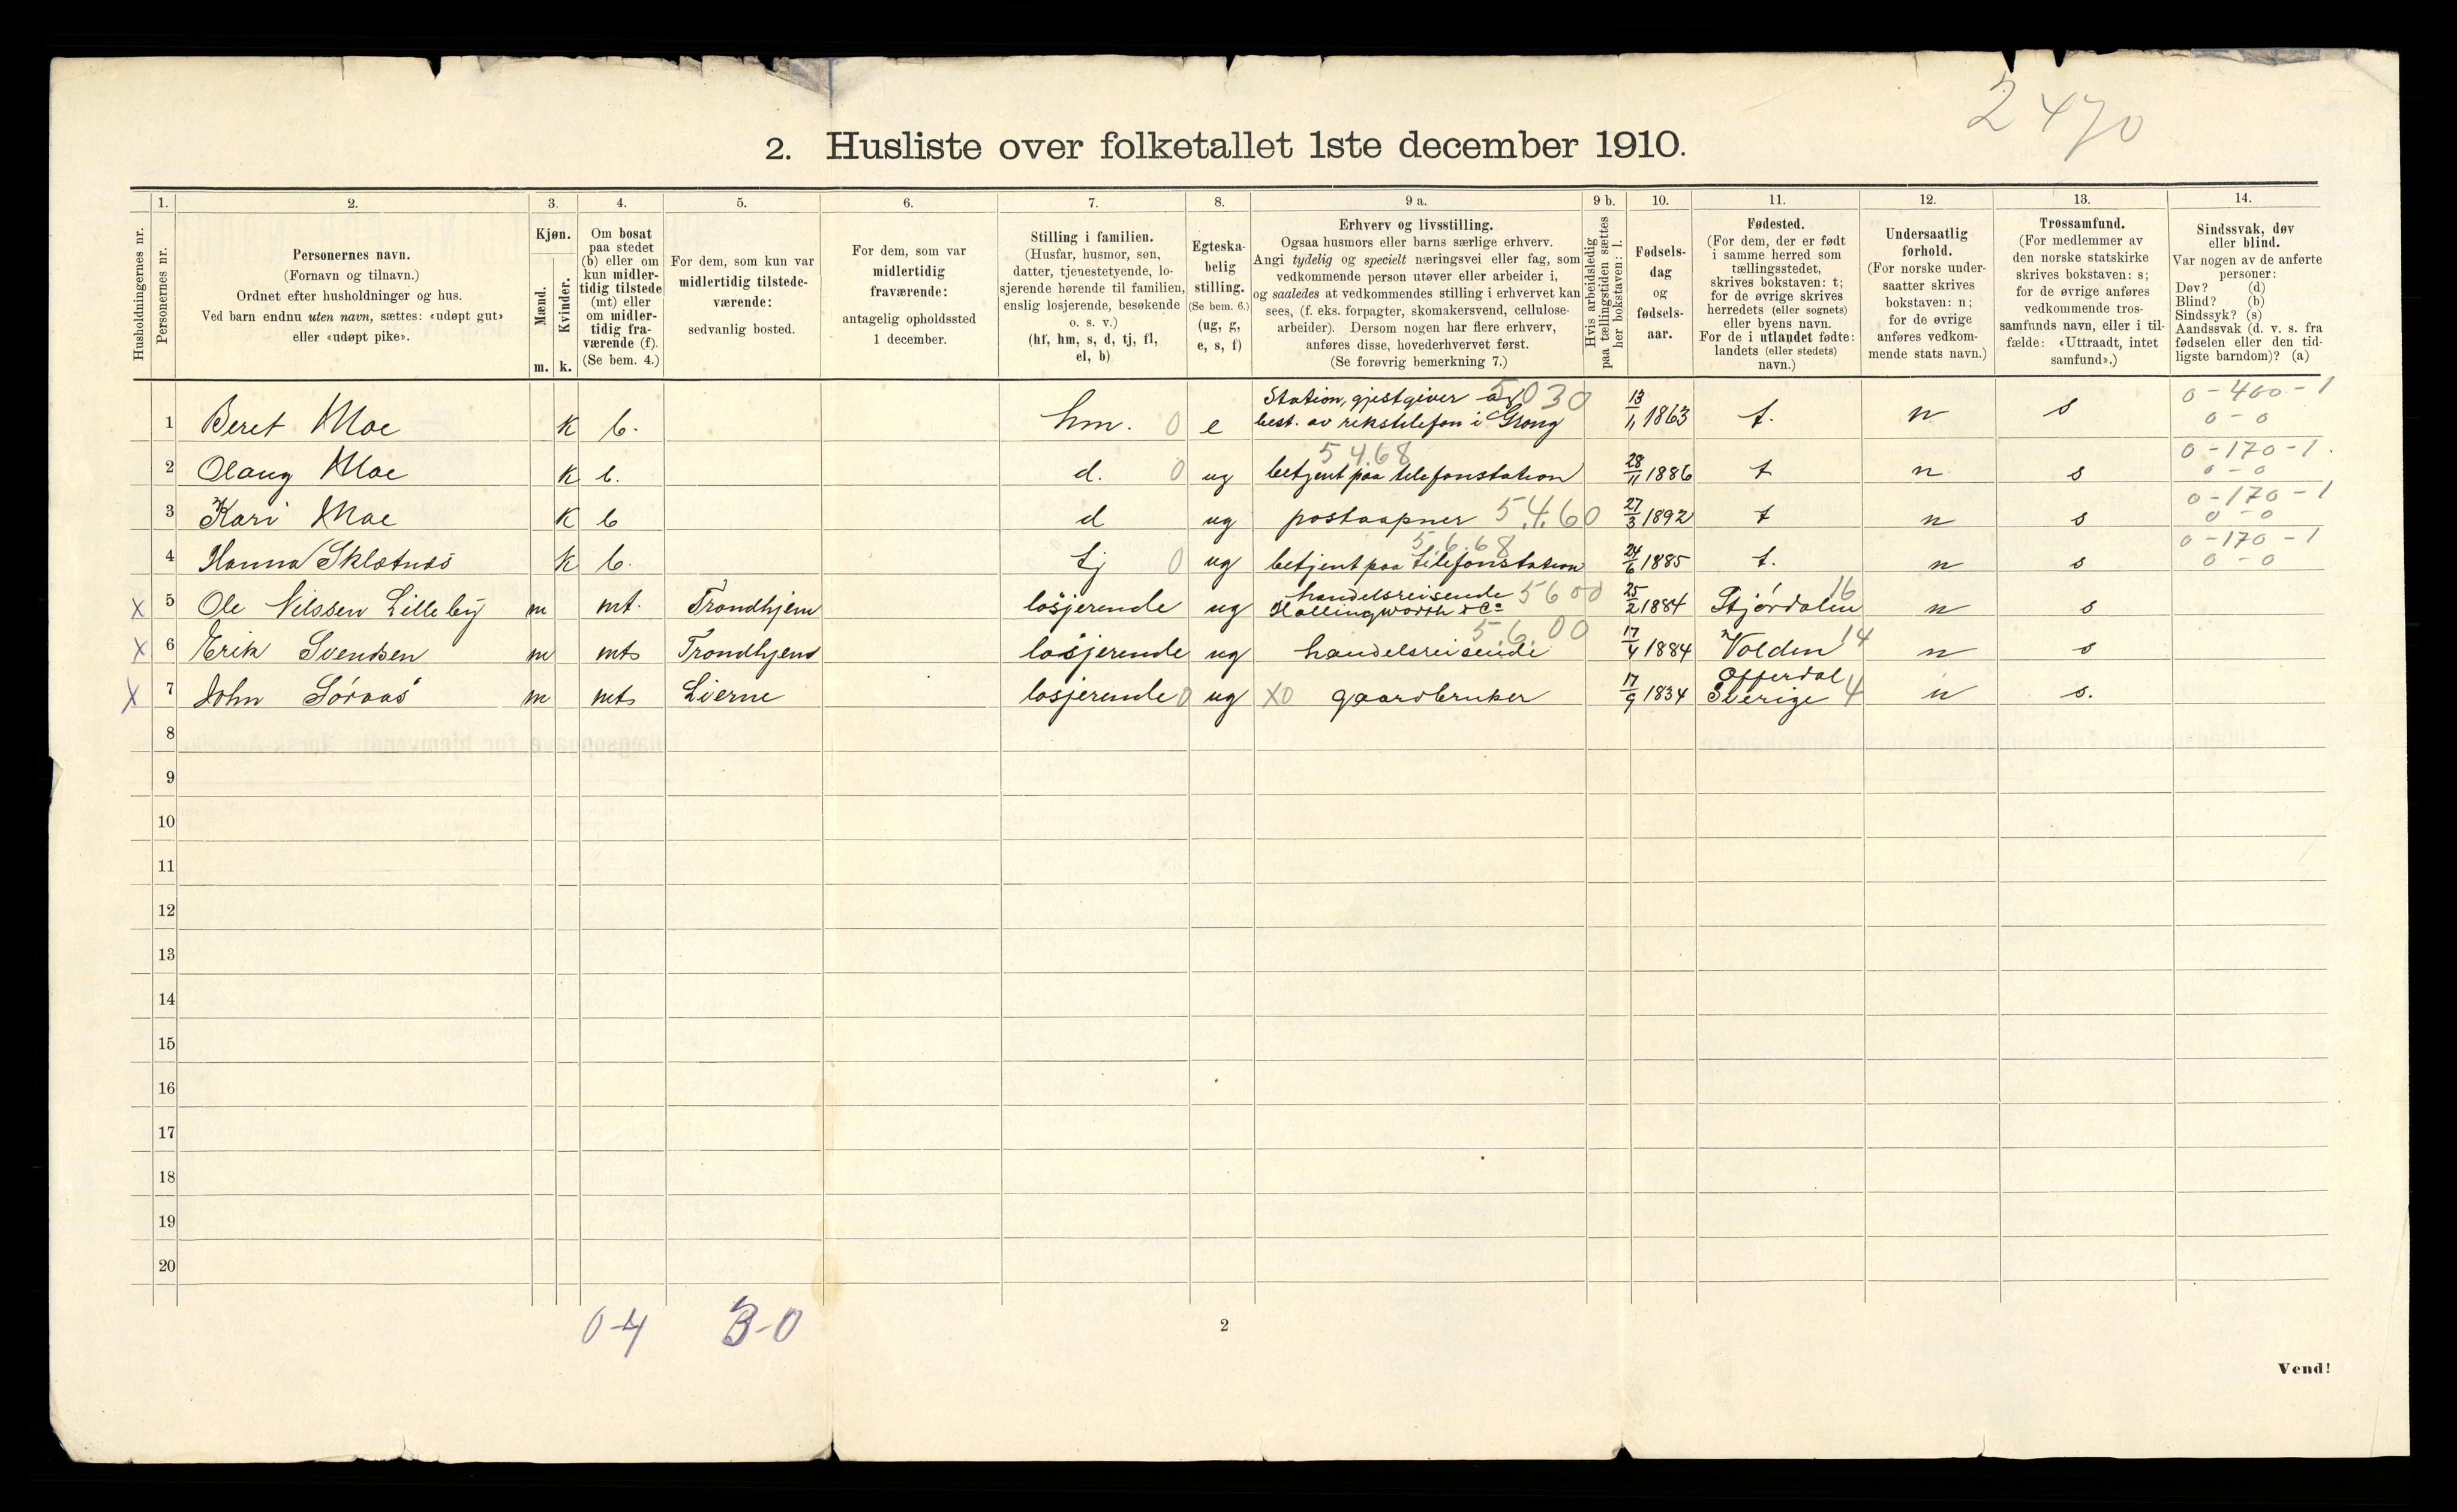 2470
2. Husliste over folketallet 1ste december 1910.
Husholdningernes nr.
1.
Personernes nr.
2.
Personernes navn.
(Fornavn og tilnavn.)
Ordnet efter husholdninger og hus.
Ved barn endnu uten navn, sættes: «udøpt gut»
eller «udøpt pike».
3.
Kjøn.
Mænd.
Kvinder.
m. k.
4.
Om bosat
paa stedet
(b) eller om
kun midler-
tidig tilstede
(mt) eller
om midler-
tidig fra-
værende (f).
(Se bem. 4.)
5.
For dem, som kun var
midlertidig tilstede-
værende:
sedvanlig bosted.
6.
For dem, som var
midlertidig
fraværende:
antagelig opholdssted
1 december.
7.
Stilling i familien.
(Husfar, husmor, søn,
datter, tjenestetyende, lo-
sjerende hørende til familien,
enslig losjerende, besøkende
o. s. v.)
(hf, hm, s, d, tj, fl,
el, b)
8.
Egteska-
belig
stilling.
(Se bem. 6.)
(ug, g,
e, s, f)
9 a.
Erhverv og livsstilling.
Ogsaa husmors eller barns særlige erhverv.
Angi tydelig og specielt næringsvei eller fag, som
vedkommende person utøver eller arbeider i,
og saaledes at vedkommendes stilling i erhvervet kan
sees, (f. eks. forpagter, skomakersvend, cellulose-
arbeider). Dersom nogen har flere erhverv,
anføres disse, hovederhvervet først.
(Se forøvrig bemerkning 7.)
9 b.
Hvis arbeidsledig
paa tællingstiden sættes
her bokstaven: l.
10.
Fødsels-
dag
og
fødsels-
aar.
11.
Fødested.
(For dem, der er født
i samme herred som
tællingsstedet,
skrives bokstaven: t;
for de øvrige skrives
herredets (eller sognets)
eller byens navn.
For de i utlandet fødte:
landets (eller stedets)
navn.)
12.
Undersaatlig
forhold.
(For norske under-
saatter skrives
bokstaven: n;
for de øvrige
anføres vedkom-
mende stats navn.)
13.
Trossamfund.
(For medlemmer av
den norske statskirke
skrives bokstaven: s;
for de øvrige anføres
vedkommende tros-
samfunds navn, eller i til-
fælde: «Uttraadt, intet
samfund».)
14.
Sindssvak, døv
eller blind.
Var nogen av de anførte
personer:
Døv? (d)
Blind? (b)
Sindssyk? (s)
Aandssvak (d. v. s. fra
fødselen eller den tid-
ligste barndom)? (a)
Station, gjestgiver og 5030 0-400-1
1 Beret Moe K b. hm. 0 e best. av rikstelefon i Grong 13/11 1863 t. n s 0-0
5468 0-170-1.
2 Olaug Moe K b. d. 0 ug betjent paa telefonstation 28/11 1886 t n s 0-0
0-170-1
3 Kari Moe K b d ug postaapner 5.4.60 27/3 1892 t n s 0-0
5.6.68 0-170-1
4 Hanna Sklætnæs K b. tj 0 ug betjent paa telefonstation 24/6 1885 t. n s 0-0
handelsreisende 5600 16
X 5 Ole Nilssen Lilleby m mt. Trondhjem losjerende ug Hollingworth & Co 25/2 1884 Stjørdalen n s
5.6.00 14
X 6 Erik Svendsen m mt Trondhjem losjerende ug handelsreisende 17/4 1884 Volden n s
Offerdal
X 7 John Søraas m mt Lierne losjerende 0 ug X0 gaardbruker 17/9 1834 Sverige 4 n s.
8
9
10
11
12
13
14
15
16
17
18
19
20
0-4 3-0
2
Vend!